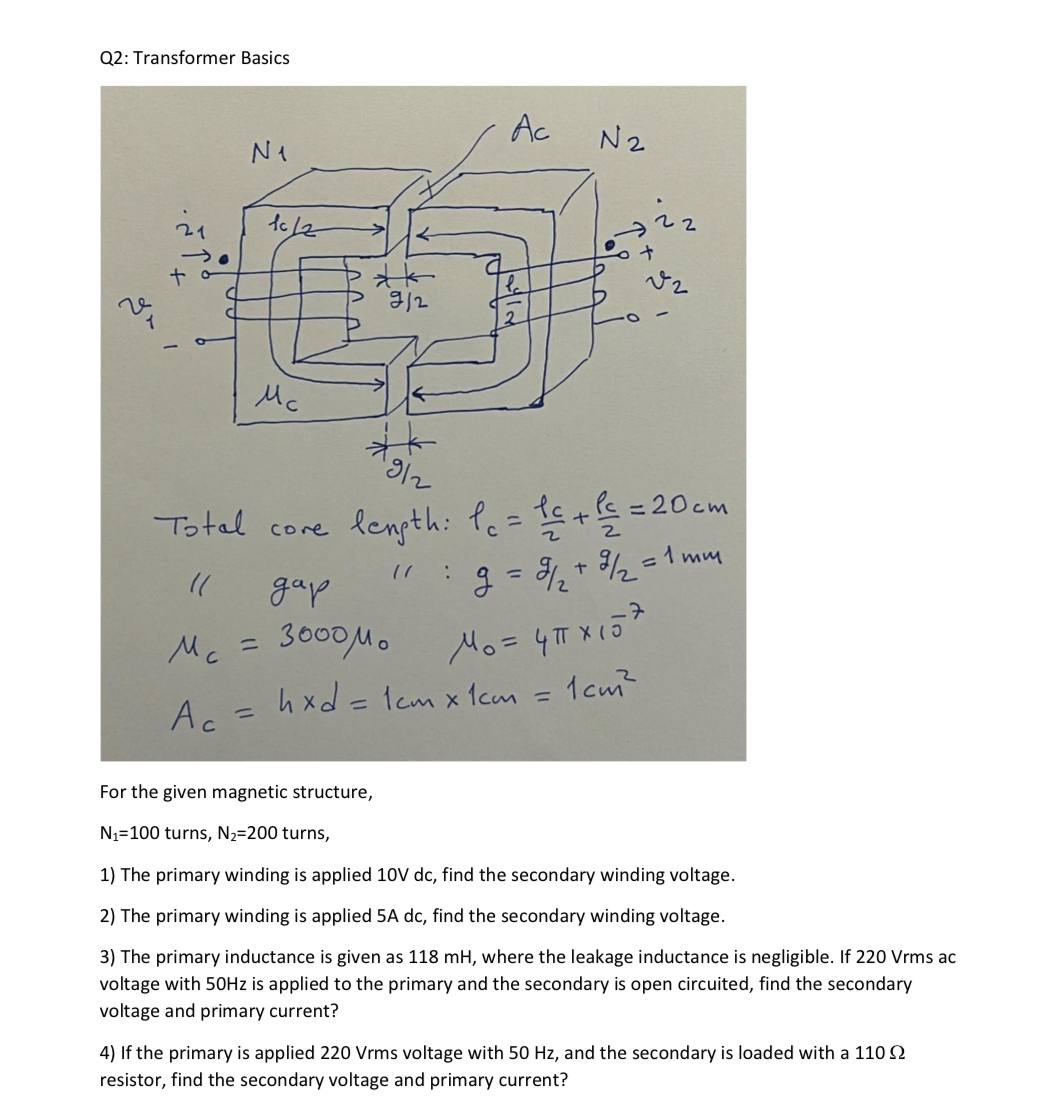 Q2: Transformer Basics
N1
Ac
N2
i1
lc/2
i2
+
+
v1
g/2
lc/2
v2
-
-
μc
g/2
Total core length: lc = lc/2 + lc/2 = 20cm
〃 gap 〃 : g = g/2 + g/2 = 1 mm
μc = 3000μ0 μ0 = 4π × 10⁻⁷
Ac = h×d = 1cm × 1cm = 1cm²
For the given magnetic structure,
N₁=100 turns, N₂=200 turns,
1) The primary winding is applied 10V dc, find the secondary winding voltage.
2) The primary winding is applied 5A dc, find the secondary winding voltage.
3) The primary inductance is given as 118 mH, where the leakage inductance is negligible. If 220 Vrms ac
voltage with 50Hz is applied to the primary and the secondary is open circuited, find the secondary
voltage and primary current?
4) If the primary is applied 220 Vrms voltage with 50 Hz, and the secondary is loaded with a 110 Ω
resistor, find the secondary voltage and primary current?